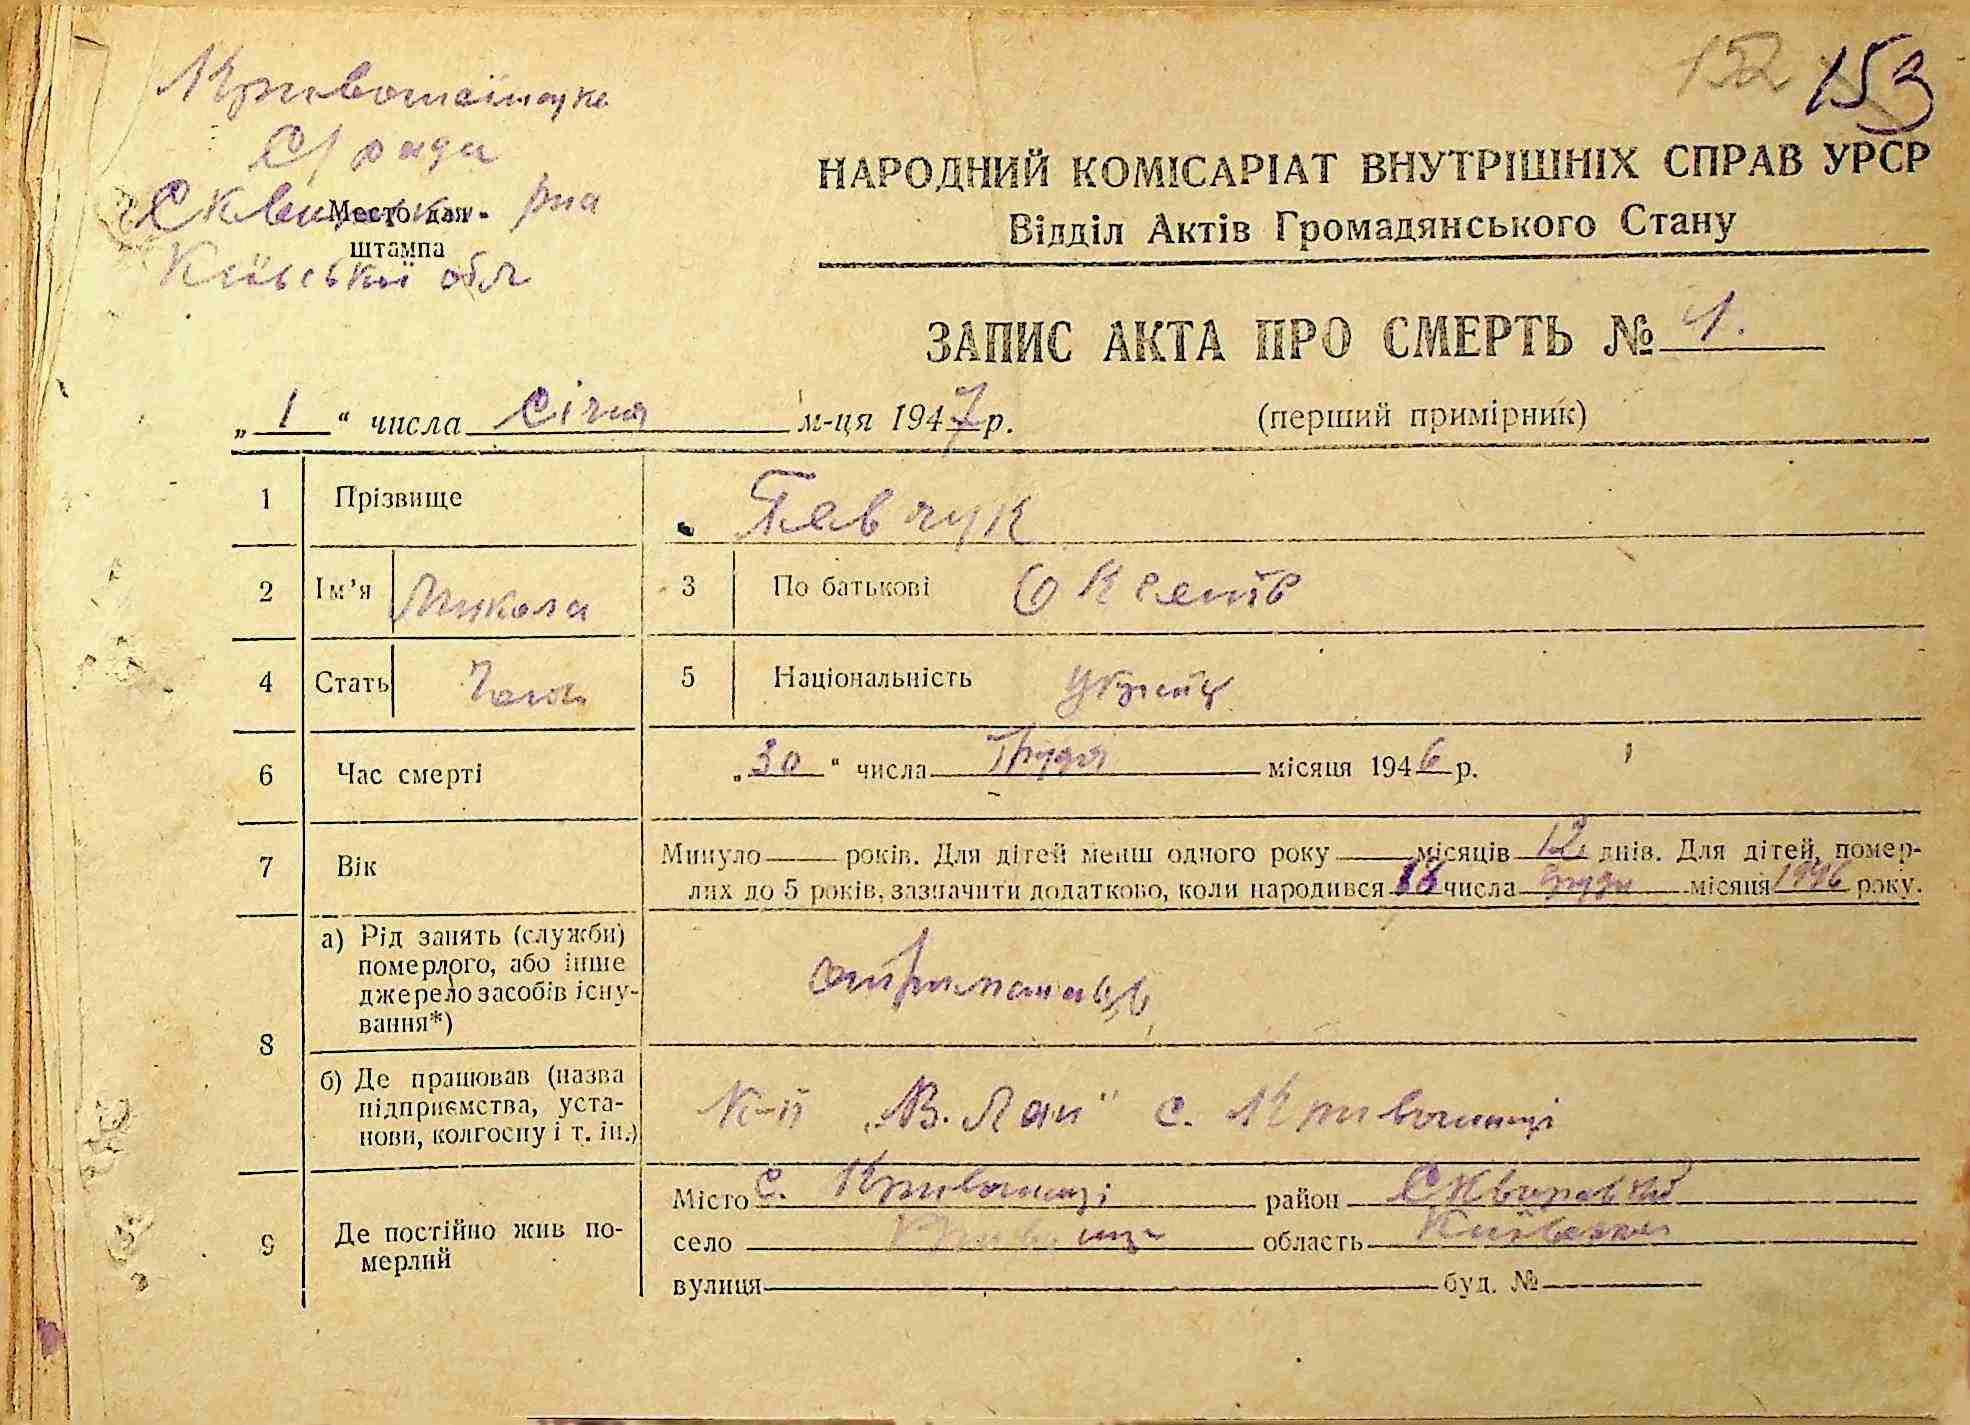 152 153
Кривошиїнська
С/рада
Сквирськ. р-на
Место для
штампа
Київської обл
НАРОДНИЙ КОМІСАРІАТ ВНУТРІШНІХ СПРАВ УРСР
Відділ Актів Громадянського Стану
ЗАПИС АКТА ПРО СМЕРТЬ № 1.
„ 1 “ числа Січня м-ця 1947 р. (перший примірник)
1 Прізвище Павчук
2 Ім’я Микола 3 По батькові
4 Стать Чол. 5 Національність
6 Час смерті „30“ числа Грудня місяця 1946 р.
7 Вік Минуло років. Для дітей менш одного року місяців 12 днів. Для дітей, помер-
лих до 5 років, зазначити додатково, коли народився 18 числа грудн місяця 1946 року.
8 а) Рід занять (служби)
померлого, або інше
джерело засобів існу-
вання*)
б) Де працював (назва
підприємства, уста-
нови, колгоспу і т. ін.)
К-п „В. Лан" с. Кривошиїнці
9 Де постійно жив по-
мерлий
Місто с. Кривошиїнці район Сквирський
село область Київська
вулиця буд. №